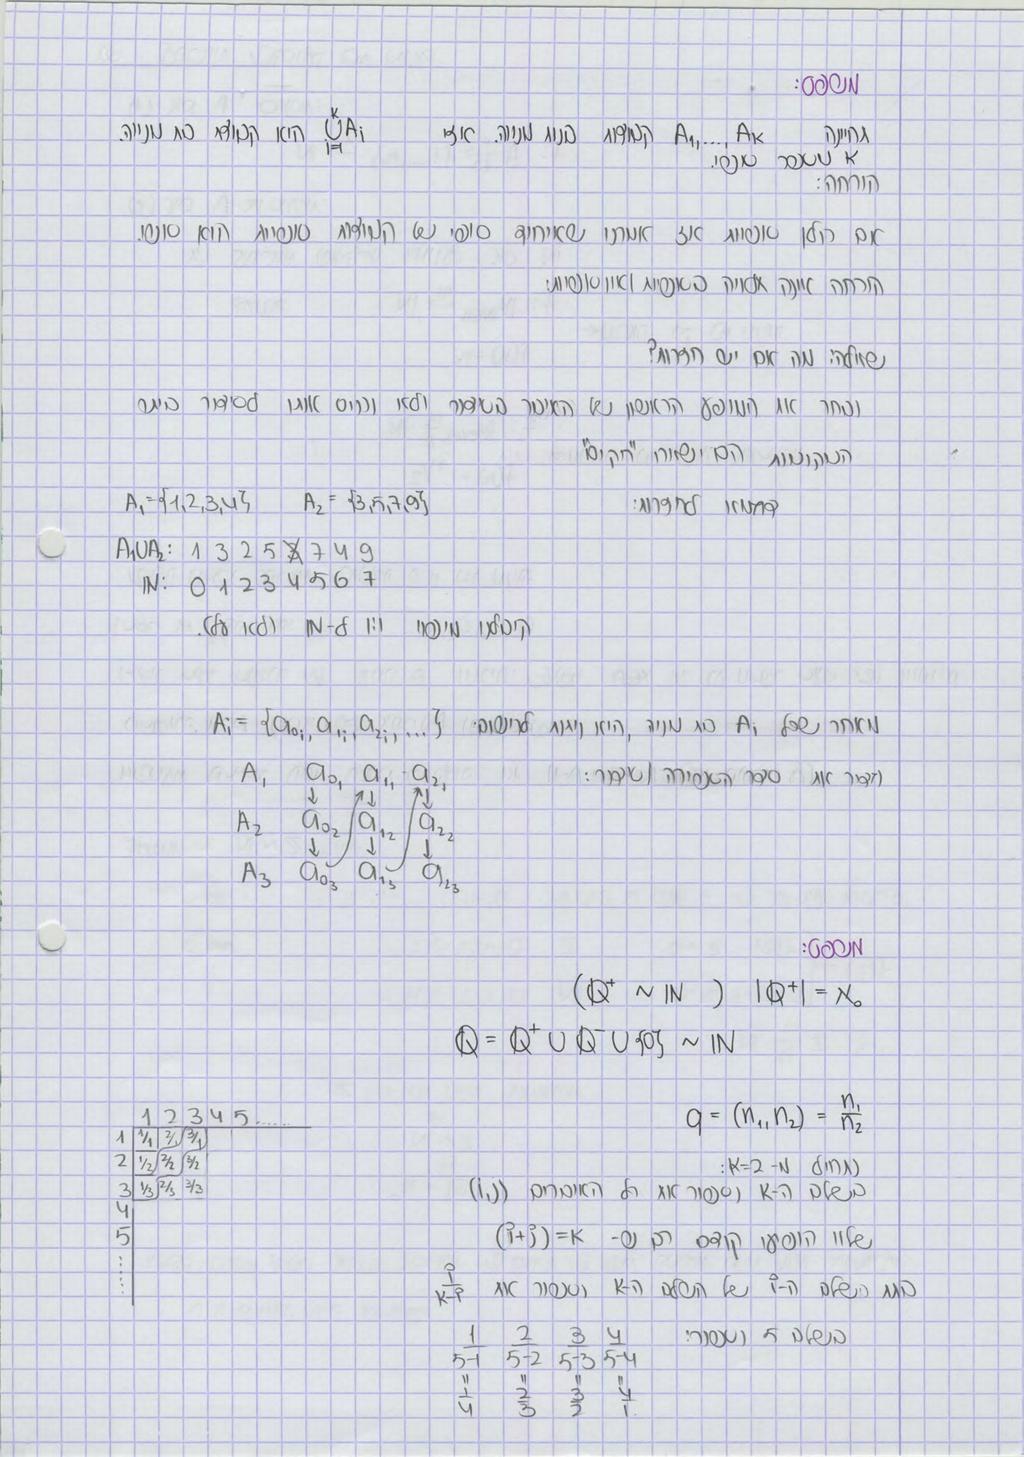 משפט:
תהיינה A₁,...,Aₖ קבוצות בנות מנייה. אזי ⋃ᵢ₌₁ᴷ Aᵢ היא קבוצה בת מנייה.
K מספר סופי.
הוכחה:
אם כולן סופיות אז אמרנו שאיחוד סופי של קבוצות סופיות הוא סופי.
הוכחה אינה תלויה בסופיות/אינסופיות:
שאלה: מה אם יש חזרות?
נבחר את המופע הראשון של האיבר בסידור ולא נכניס אותו לסידור ביתר
המקומות הם ישארו "חקים"
דוגמא לחזרות: A₁={1,2,3,4} A₂={3,5,7,9}
A₁∪A₂: 1 3 2 5 3 7 4 9
ℕ: 0 1 2 3 4 5 6 7
קיבלנו מיפוי 1:1 ל-ℕ (ולא על).
מאחר שכל Aᵢ בת מנייה, היא ניתנת לרישום: Aᵢ={a₀ᵢ,a₁ᵢ,a₂ᵢ,...}
נגדיר את סדר הספירה/סידור:
A₁ a₀₁ a₁₁ a₂₁
↓ ↓ ↓
A₂ a₀₂ a₁₂ a₂₂
↓ ↓ ↓
A₃ a₀₃ a₁₃ a₂₃
משפט:
(ℚ⁺ ~ ℕ) |ℚ⁺| = ℵ₀
ℚ = ℚ⁺ ∪ ℚ⁻ ∪ {0} ~ ℕ
q = (n₁,n₂) = n₁/n₂
1 2 3 4 5 ......
1 1/1 2/1 3/1
2 1/2 2/2 3/2
3 1/3 2/3 3/3
4
5
נתחיל מ-K=2:
בשלב ה-K נספור את כל האיברים (i,j)
שלא הופיעו קודם כך ש- K=(i+j)
בתת השלב ה-i של השלב ה-K נספור את i/(K-i)
בשלב 5 נספור:
1/(5-1) 2/(5-2) 3/(5-3) 4/(5-4)
" " " "
1/4 2/3 3/2 4/1